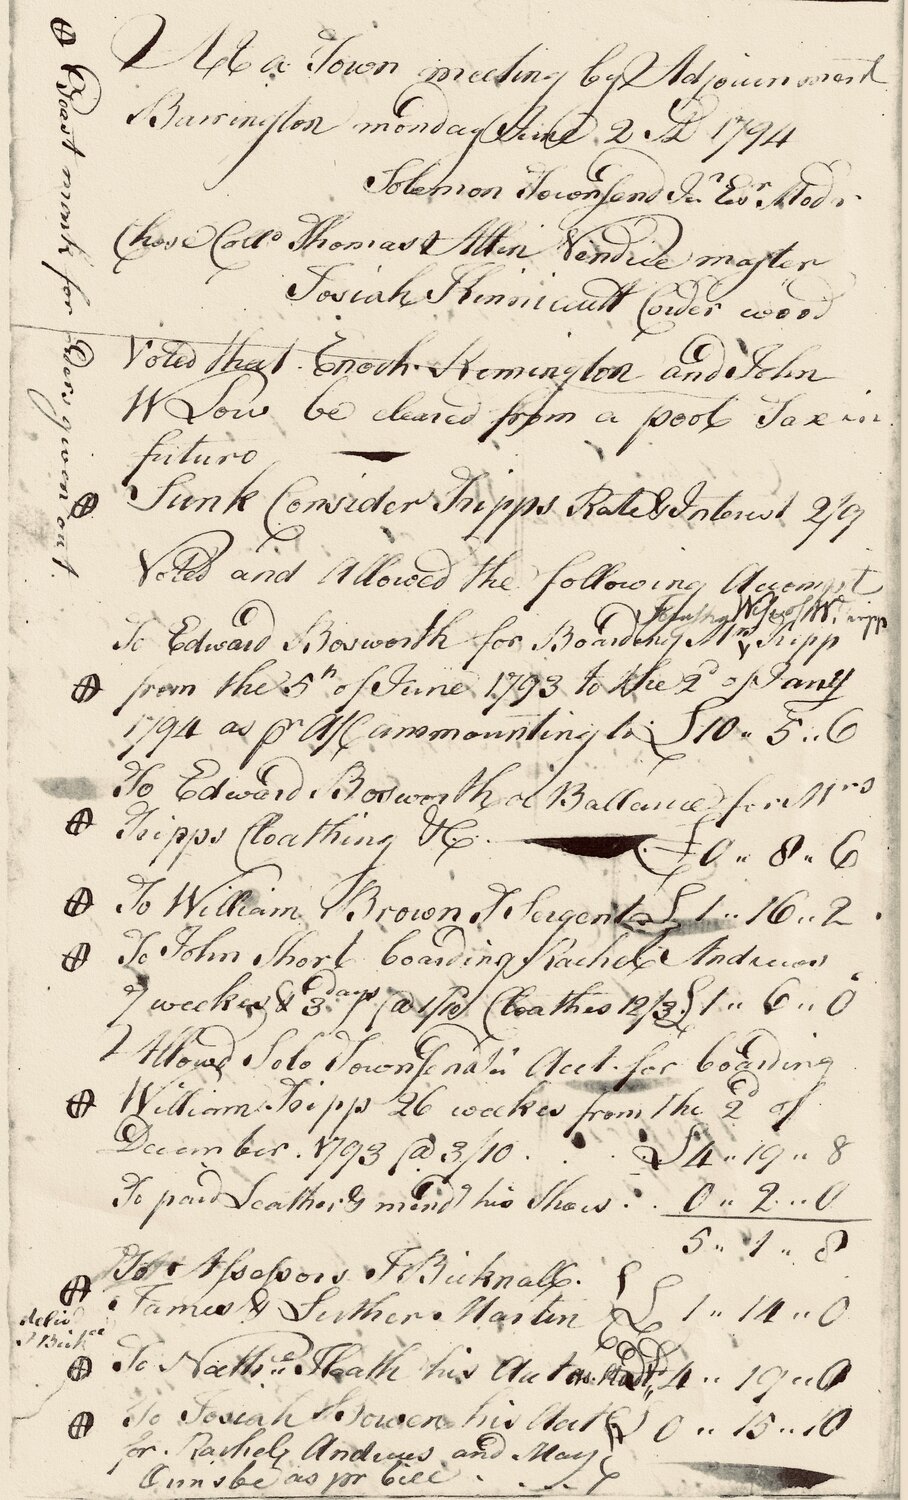 At a Town meeting by Adjournment
Barrington monday June 2 AD 1794
Solemon Townsend Jur Esr Modr
Chose Collo Thomas Allin Vendue master
Josiah Kinnicutt Corder wood
Voted that Enoch Remington and John
W Low be cleared from a pool Tax in
futuro
Sunk Consider Tripps Rate & Interest 2/9
Voted and Allowed the following Accompt
Wife of Wm Tripp
To Edward Bosworth for Boarding Mrs Tripp
from the 5th of June 1793 to the 2d of Jany
1794 as pr A/C ammounting to £10 ,, 5 ,, 6
To Edward Bosworth a Ballance for Mrs
Tripps Cloathing &C £0 ,, 8 ,, 6
To William Brown T Sergent £1 ,, 16 ,, 2
To John Short boarding Rachel Andrews
7 weeks & 3 days @ Cloathes 12/3 £1 ,, 6 ,, 0
Allowd Solo Townsend Jur Acct for boarding
William Tripp 26 weekes from the 2d of
December 1793 @ 3/10 £4 ,, 19 ,, 8
To paid Leather & mend his Shoes 0 ,, 2 ,, 0
5 ,, 1 ,, 8
To Assessors J Bicknall
James & Luther Martin £1 ,, 14 ,, 0
To Nathl Heath his Acct 4 ,, 19 ,, 0
To Josiah Bowen his Acct 0 ,, 15 ,, 10
for Rachel Andrews and May
Ormsbe as pr bill
Boast mark for orders given out
delivd
J Bick